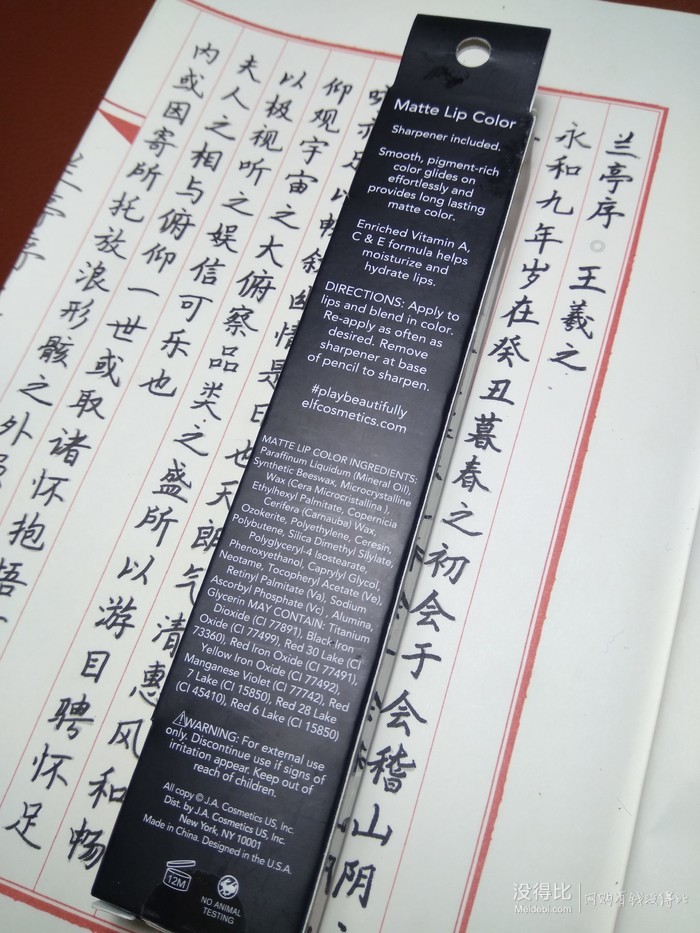 Matte Lip Color
Sharpener included.
Smooth, pigment-rich
color glides on
effortlessly and
provides long lasting
matte color.
Enriched Vitamin A,
C & E formula helps
moisturize and
hydrate lips.
DIRECTIONS: Apply to
lips and blend in color.
Re-apply as often as
desired. Remove
sharpener at base
of pencil to sharpen.
#playbeautifully
elfcosmetics.com
MATTE LIP COLOR INGREDIENTS:
Paraffinum Liquidum (Mineral Oil),
Synthetic Beeswax, Microcrystalline
Wax (Cera Microcristallina ),
Ethylhexyl Palmitate, Copernicia
Cerifera (Carnauba) Wax,
Ozokerite, Polyethylene, Ceresin,
Polybutene, Silica Dimethyl Silylate,
Polyglyceryl-4 Isostearate,
Phenoxyethanol, Caprylyl Glycol,
Neotame, Tocopheryl Acetate (Ve),
Retinyl Palmitate (Va), Sodium
Ascorbyl Phosphate (Vc) , Alumina,
Glycerin MAY CONTAIN: Titanium
Dioxide (CI 77891), Black Iron
Oxide (CI 77499), Red 30 Lake (CI
73360), Red Iron Oxide (CI 77491),
Yellow Iron Oxide (CI 77492),
Manganese Violet (CI 77742), Red
7 Lake (CI 15850), Red 28 Lake
(CI 45410), Red 6 Lake (CI 15850)
⚠WARNING: For external use
only. Discontinue use if signs of
irritation appear. Keep out of
reach of children.
All copy © J.A. Cosmetics US, Inc.
Dist. by J.A. Cosmetics US, Inc.
New York, NY 10001
Made in China. Designed in the U.S.A.
12M
NO ANIMAL
TESTING
兰亭序 王羲之
永和九年岁在癸丑暮春之初会于会稽山阴
咏亦足以畅叙幽情是日也天朗气清惠风和畅
仰观宇宙之大俯察品类之盛所以游目骋怀足
以极视听之娱信可乐也
夫人之相与俯仰一世或取诸怀抱悟
内或因寄所托放浪形骸之外
兰亭序
没得比
Meidebi.com
网购有我没得比